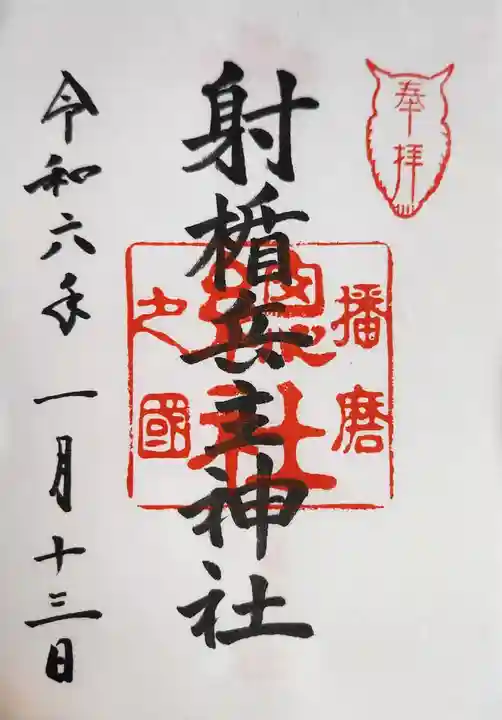 奉拝
播磨
総社
之國
射楯兵主神社
令和六年一月十三日